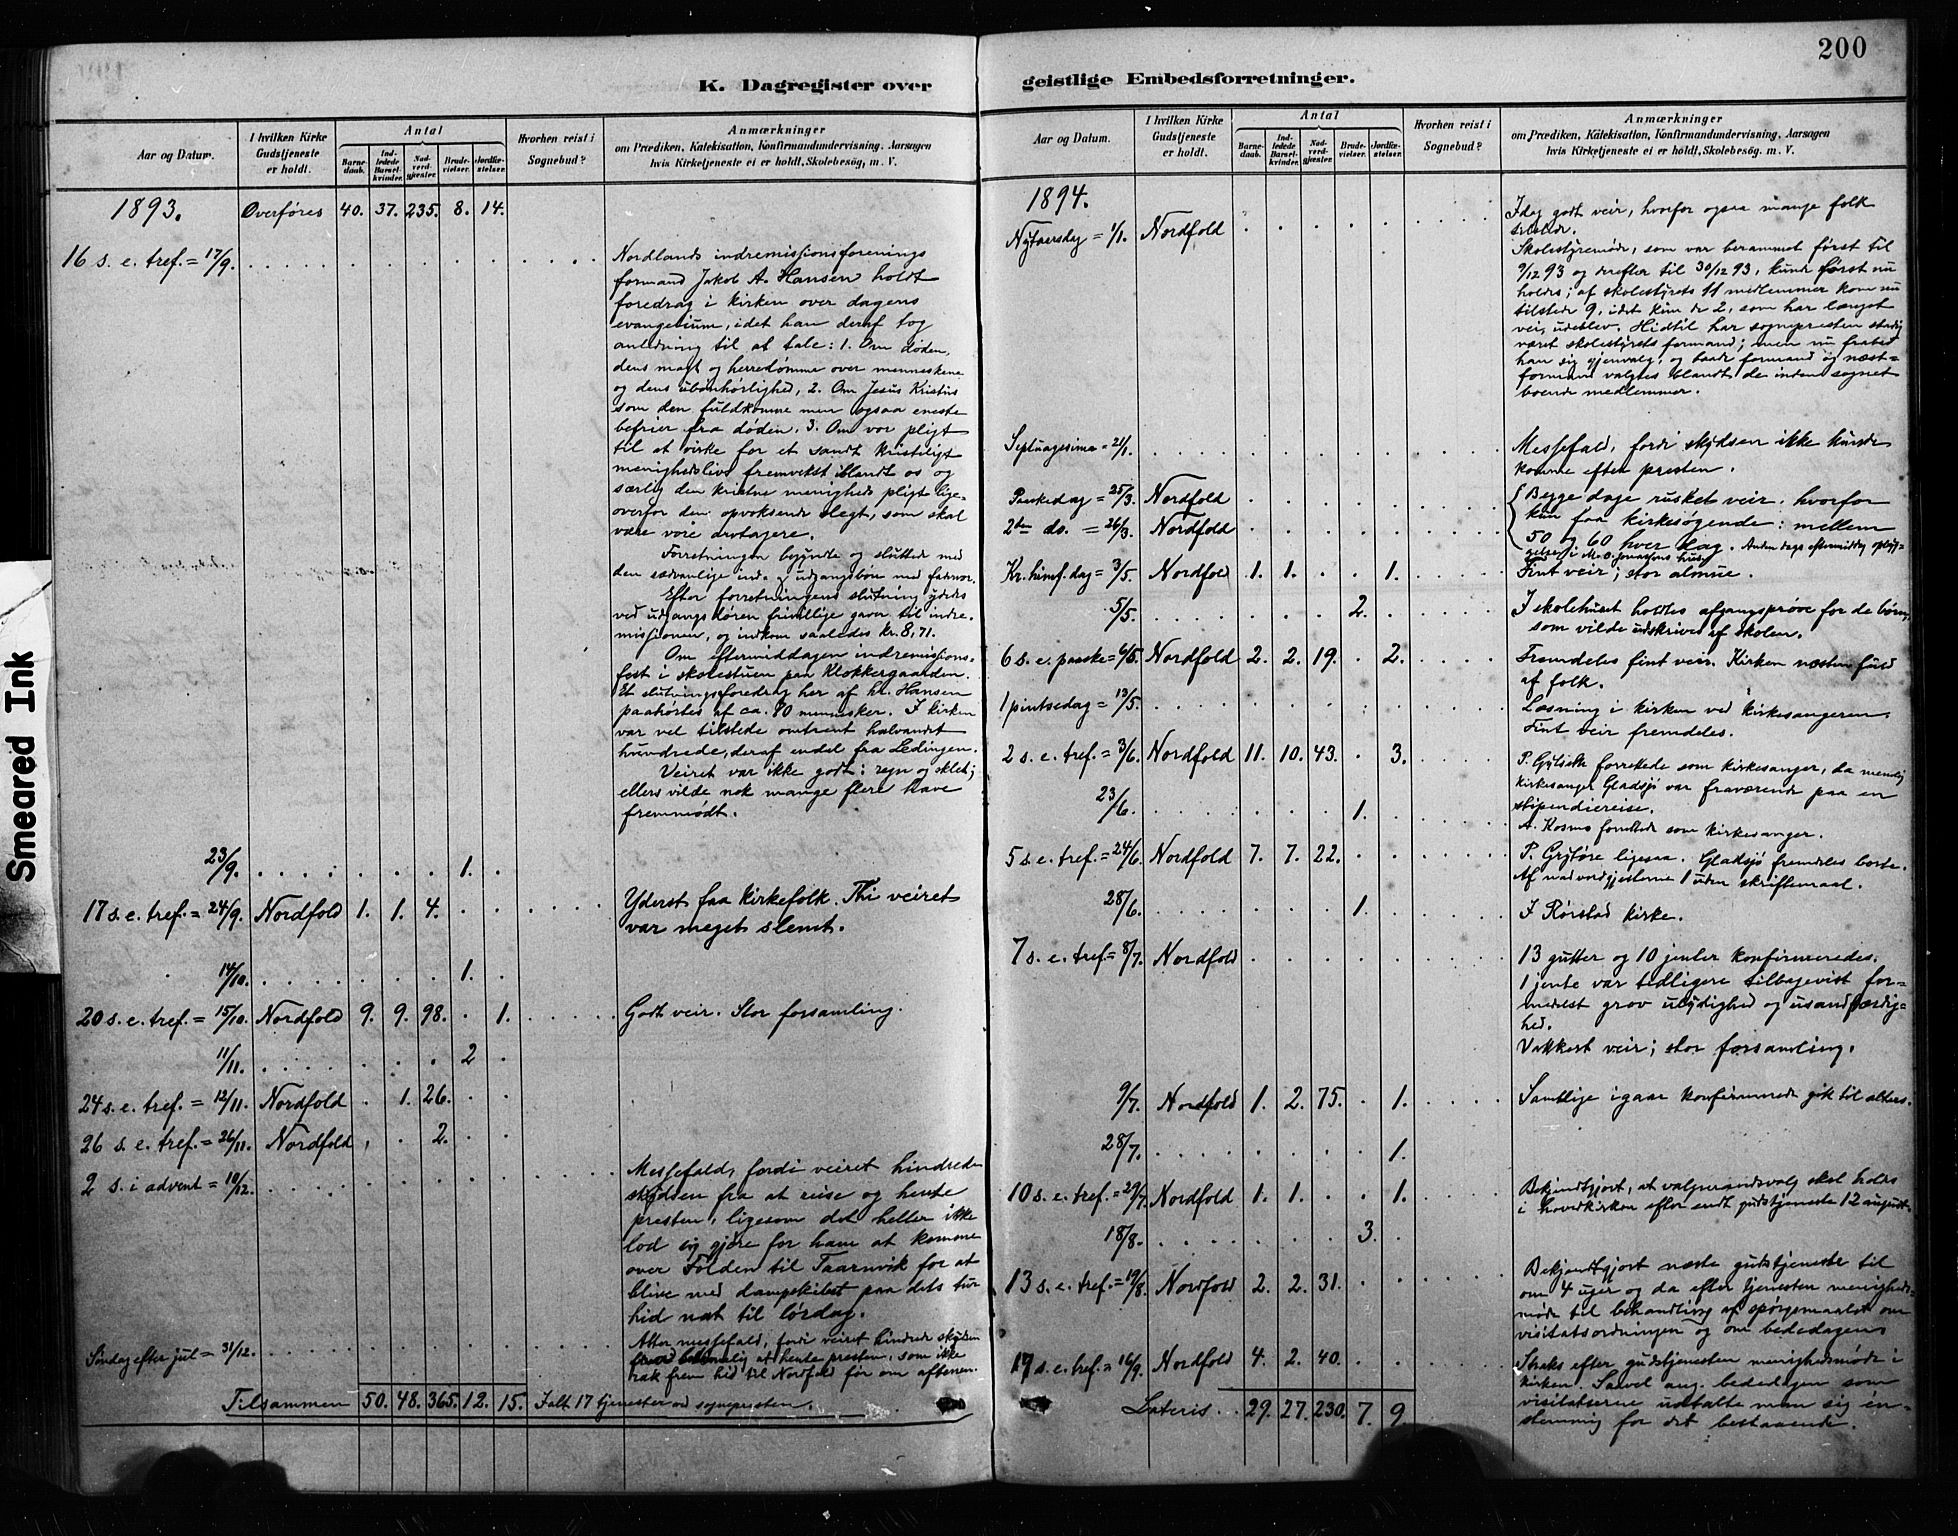 200
K. Dagregister over
geistlige Embedsforretninger.
Smeared Ink
Aar og Datum.
I hvilken Kirke
Gudstjeneste
er holdt.
Antal
Barne-
daab.
Ind-
ledede
Barsel-
kvinder.
Nad-
verd-
gjester.
Brude-
vielser.
Jordfæ-
stelser.
Hvorhen reist i
Sognebud?
Anmærkninger
om Prædiken, Katekisation, Konfirmandundervisning, Aarsagen
hvis Kirketjeneste ei er holdt, Skolebesøg, m. V.
1893. Overføres 40. 37. 235. 8. 14.
16 s. e. tref. = 17/9.
Nordlands indremissionsforenings
formand Jakob A. Hansen holdt
foredrag i kirken over dagens
evangelium, idet han deraf tog
anledning til at tale: 1. Om døden,
dens magt og herredømme over menneskene
og dens ubønhørlighed, 2. Om Jesus Kristus
som den fuldkomne men ogsaa eneste
befrier fra døden. 3. Om vor pligt
til at virke for et sandt kristeligt
menighedslivs fremvekst iblandt os og
særlig den kristne menigheds pligt lige-
overfor den opvoksende slegt, som skal
være vore arvtagere.
Forretningen begyndte og sluttede med
den sædvanlige ind- og udgangsbøn med fadervor.
Efter forretningens slutning ydedes
ved udgangsdøren frivillige gaver til indre-
missionen, og indkom saaledes kr. 8,71.
Om eftermiddagen indremissions-
fest i skolestuen paa Klokkergaarden.
Et slutningsforedrag her af hr. Hansen
paahørtes af ca. 80 mennesker. I kirken
var vel tilstede omtrent halvandet
hundrede, deraf endel fra Ledingen.
Veiret var ikke godt: regn og sklet;
ellers vilde nok mange flere have
fremmødt.
23/9. 1.
17 s. e. tref. = 24/9. Nordfold 1. 1. 4. Yderst faa kirkefolk. Thi veiret
var meget slemt.
14/10. 1.
20 s. e. tref. = 15/10. Nordfold 9. 9. 98. 1. Godt veir. Stor forsamling.
11/11. 2
24 s. e. tref. = 12/11. Nordfold 1. 26.
26 s. e. tref. = 26/11. Nordfold 2.
2 s. i advent = 10/12. Messefald, fordi veiret hindrede
skydsen fra at reise og hente
presten, ligesom det heller ikke
lod sig gjøre for ham at komme
over Folden til Taarnvik for at
blive med dampskibet paa dets tur
hid nat til lørdag.
Søndag efter jul = 31/12. Atter messefald, fordi veiret hindrede skydsen
at hente presten, som ikke
rak frem hid til Nordfold før om aftenen.
Tilsammen 50. 48. 365. 12. 15. Ialt 17 tjenester ved sognepresten.
Aar og Datum.
I hvilken Kirke
Gudstjeneste
er holdt.
Antal
Barne-
daab.
Ind-
ledede
Barsel-
kvinder.
Nad-
verd-
gjester.
Brude-
vielser.
Jordfæ-
stelser.
Hvorhen reist i
Sognebud?
Anmærkninger
om Prædiken, Katekisation, Konfirmandundervisning, Aarsagen
hvis Kirketjeneste ei er holdt, Skolebesøg, m. V.
1894.
Nytaarsdag = 1/1. Nordfold
Idag godt veir, hvorfor ogsaa mange folk
tilstede.
Skolestyremøde, som var berammet først til
9/12 93 og derefter til 30/12 93, kunde først nu
holdes; af skolestyrets 11 medlemmer kom nu
tilstede 9, idet kun de 2, som har længst
vei, udeblev. Hidtil har sognepresten stadig
været skolestyrets formand; men nu frabad
han sig gjenvalg, og baade formand og næst-
formand valgtes blandt de inden sognet
boende medlemmer.
Septuagesima = 21/1. Messefald, fordi skydsen ikke kunde
komme efter presten.
Paaskedag = 25/3. Nordfold Begge dage rusket veir, hvorfor
2den do. = 26/3. Nordfold kun faa kirkesøgende: mellem
50 og 60 hver dag. Anden dags eftermiddag opbyg-
gelse i M. O. Jonassens hus.
Kr. himf. dag = 3/5. Nordfold 1. 1. 1. Fint veir; stor almue.
5/5. 2. I skolehuset holdtes afgangsprøve for de børn,
som vilde udskrives af skolen.
6 s. e. paaske = 6/5. Nordfold 2. 2. 19. 2. Fremdeles fint veir. Kirken næsten fuld
af folk.
1 pintsedag = 13/5. Læsning i kirken ved kirkesangeren.
Fint veir fremdeles.
2 s. e. tref. = 3/6. Nordfold 11. 10. 43. 3. P. Grytøre forrettede som kirkesanger, da nemlig
kirkesanger Gladsjø var fraværende paa en
stipendiereise.
23/6. 1.
A. Kosmo forrettede som kirkesanger.
5 s. e. tref. = 24/6. Nordfold 7. 7. 22. P. Grytøre ligesaa. Gladsjø fremdeles borte.
Af nadverdgjesterne 1 uden skriftemaal.
28/6. 1. I Rørstad kirke.
7 s. e. tref. = 8/7. Nordfold 13 gutter og 10 jenter konfirmeredes.
1 jente var tidligere tilbagevist for-
medelst grov ulydighed og usandfærdig-
hed.
Vakkert veir; stor forsamling.
9/7. Nordfold 1. 2. 75. 1. Samtlige igaar konfirmerede gik til alters.
28/7. 1.
10 s. e. tref. = 29/7. Nordfold 1. 1. 1. Bekjendtgjort, at valgmandsvalg skal holdes
i hovedkirken efter endt gudstjeneste 12 august.
18/8. 3.
13 s. e. tref. = 19/8. Nordfold 2. 2. 31. Bekjendtgjort næste gudstjeneste til
om 4 uger og da efter tjenesten menigheds-
møde til behandling af spørgsmaalet om
visitatsordningen og om bededagen.
17 s. e. tref. = 16/9. Nordfold 4. 2. 40. Straks efter gudstjenesten menighedsmøde i
kirken. Saavel ang. bededagen som
visitatserne udtalte man sig én-
stemmig for det bestaaende.
Lateris. 29. 27. 230. 7. 9.